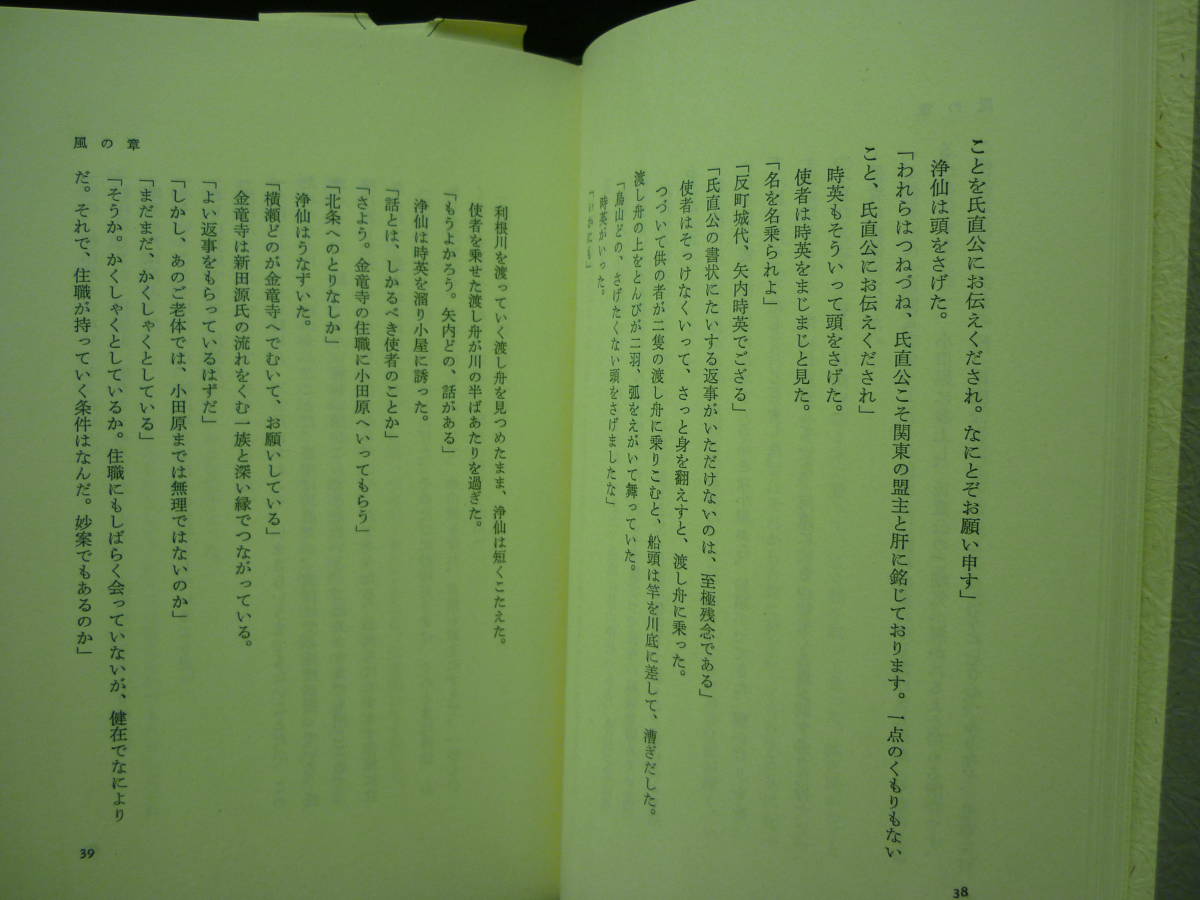 ことを氏直公にお伝えくだされ。なにとぞお願い申す」
浄仙は頭をさげた。
「われらはつねづね、氏直公こそ関東の盟主と肝に銘じております。一点のくもりもない
こと、氏直公にお伝えくだされ」
時英もそういって頭をさげた。
使者は時英をまじまじと見た。
「名を名乗られよ」
「反町城代、矢内時英でござる」
「氏直公の書状にたいする返事がいただけないのは、至極残念である」
使者はそっけなくいって、さっと身を翻えすと、渡し舟に乗った。
つづいて供の者が二隻の渡し舟に乗りこむと、船頭は竿を川底に差して、漕ぎだした。
渡し舟の上をとんびが二羽、弧をえがいて舞っていた。
「鳥山どの、さげたくない頭をさげましたな」
時英がいった。
「いかにも」
38
利根川を渡っていく渡し舟を見つめたまま、浄仙は短くこたえた。
使者を乗せた渡し舟が川の半ばあたりを過ぎた。
「もうよかろう。矢内どの、話がある」
浄仙は時英を溜り小屋に誘った。
「話とは、しかるべき使者のことか」
「さよう。金竜寺の住職に小田原へいってもらう」
「北条へのとりなしか」
浄仙はうなずいた。
「横瀬どのが金竜寺へでむいて、お願いしている」
金竜寺は新田源氏の流れをくむ一族と深い縁でつながっている。
「よい返事をもらっているはずだ」
「しかし、あのご老体では、小田原までは無理ではないのか」
「まだまだ、かくしゃくとしている」
「そうか。かくしゃくとしているか。住職にもしばらく会っていないが、健在でなにより
だ。それで、住職が持っていく条件はなんだ。妙案でもあるのか」
風の章
39